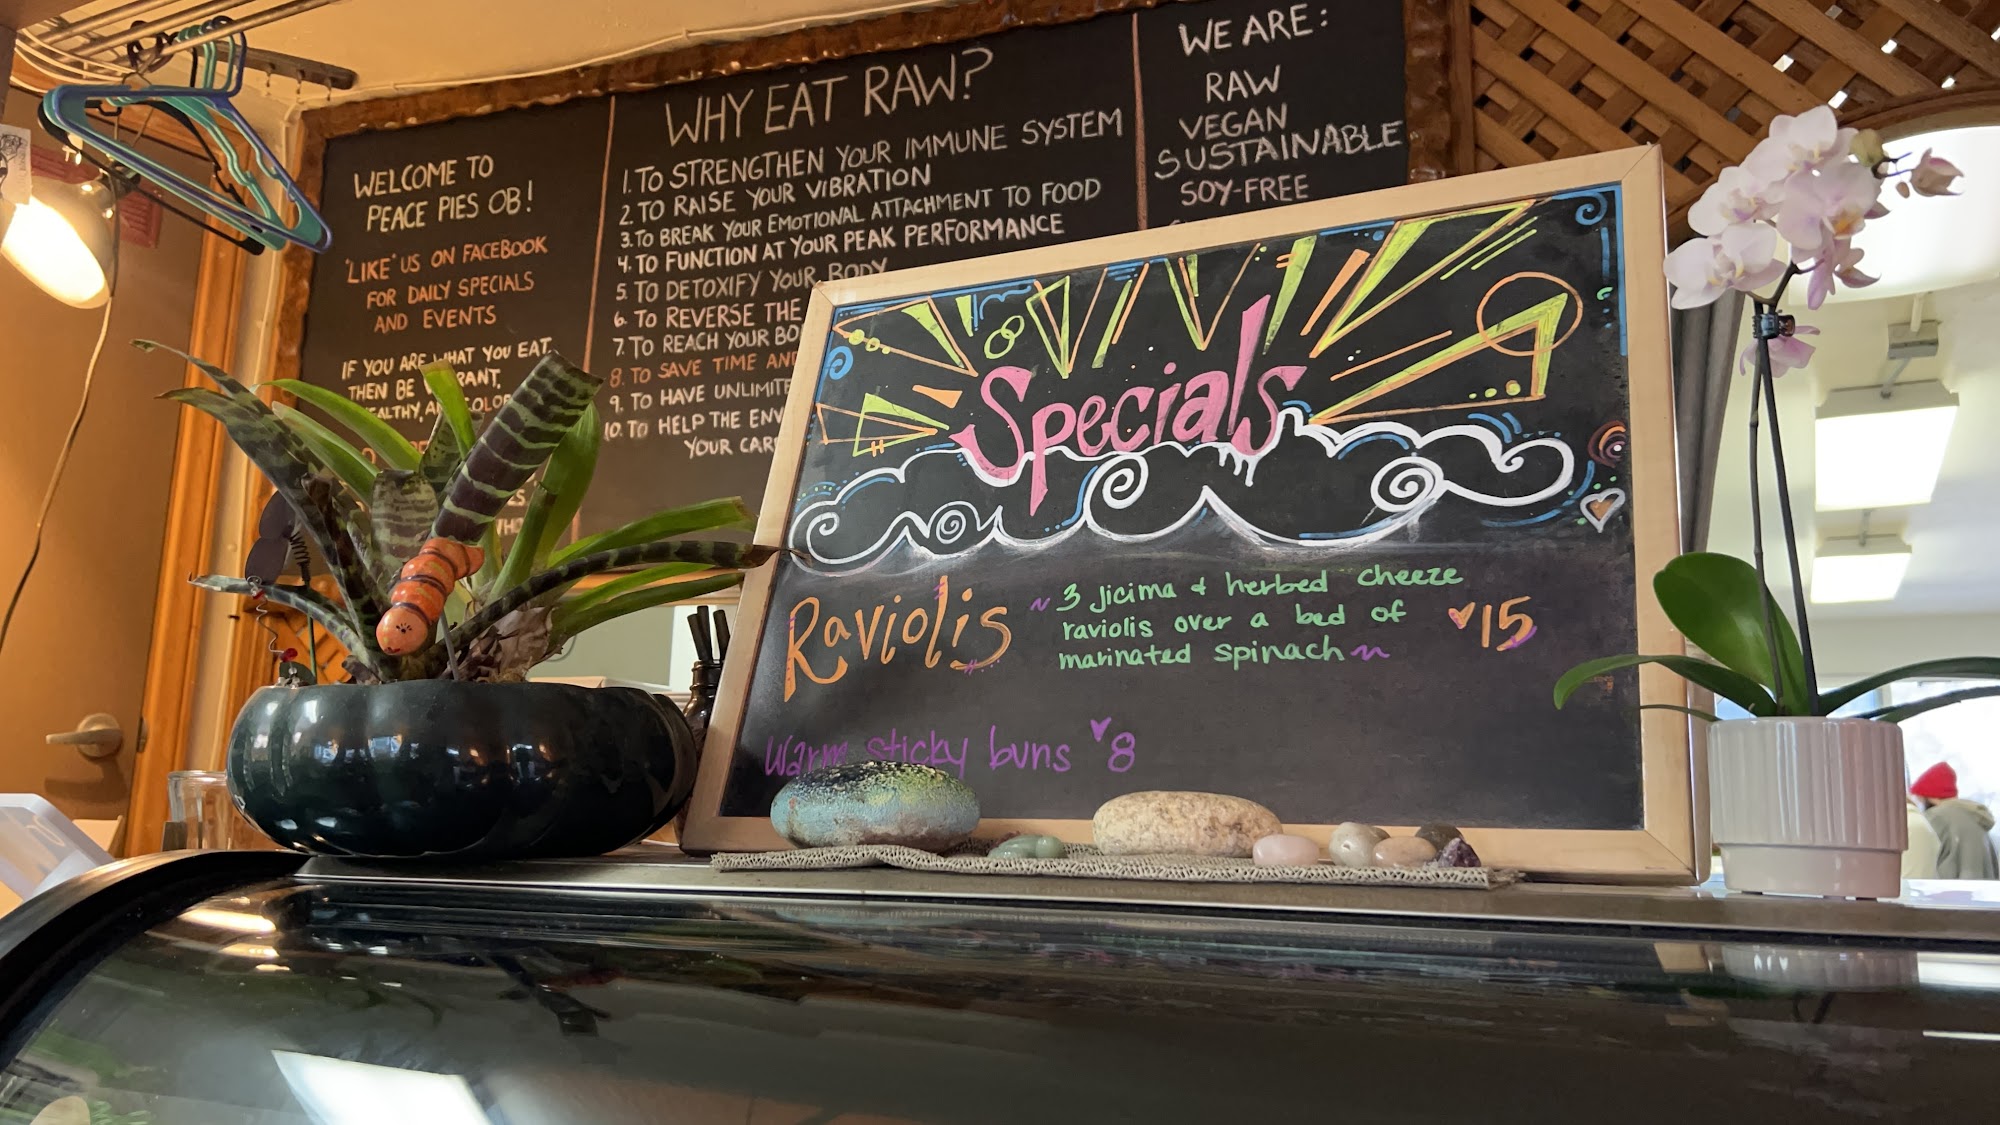 WELCOME TO
PEACE PIES OB!
'LIKE' US ON FACEBOOK
FOR DAILY SPECIALS
AND EVENTS
IF YOU ARE WHAT YOU EAT,
THEN BE
WHY EAT RAW?
1. TO STRENGTHEN YOUR IMMUNE SYSTEM
2. TO RAISE YOUR VIBRATION
3. TO BREAK YOUR EMOTIONAL ATTACHMENT TO FOOD
4. TO FUNCTION AT YOUR PEAK PERFORMANCE
5. TO DETOXIFY YOUR BODY
6. TO REVERSE THE
7. TO REACH YOUR
8. TO SAVE TIME
9. TO HAVE
10. TO HELP THE
YOUR
WE ARE:
RAW
VEGAN
SUSTAINABLE
SOY-FREE
Specials
Raviolis ~ 3 Jicima & herbed cheeze
raviolis over a bed of
marinated spinach ~
15
Warm sticky buns 8